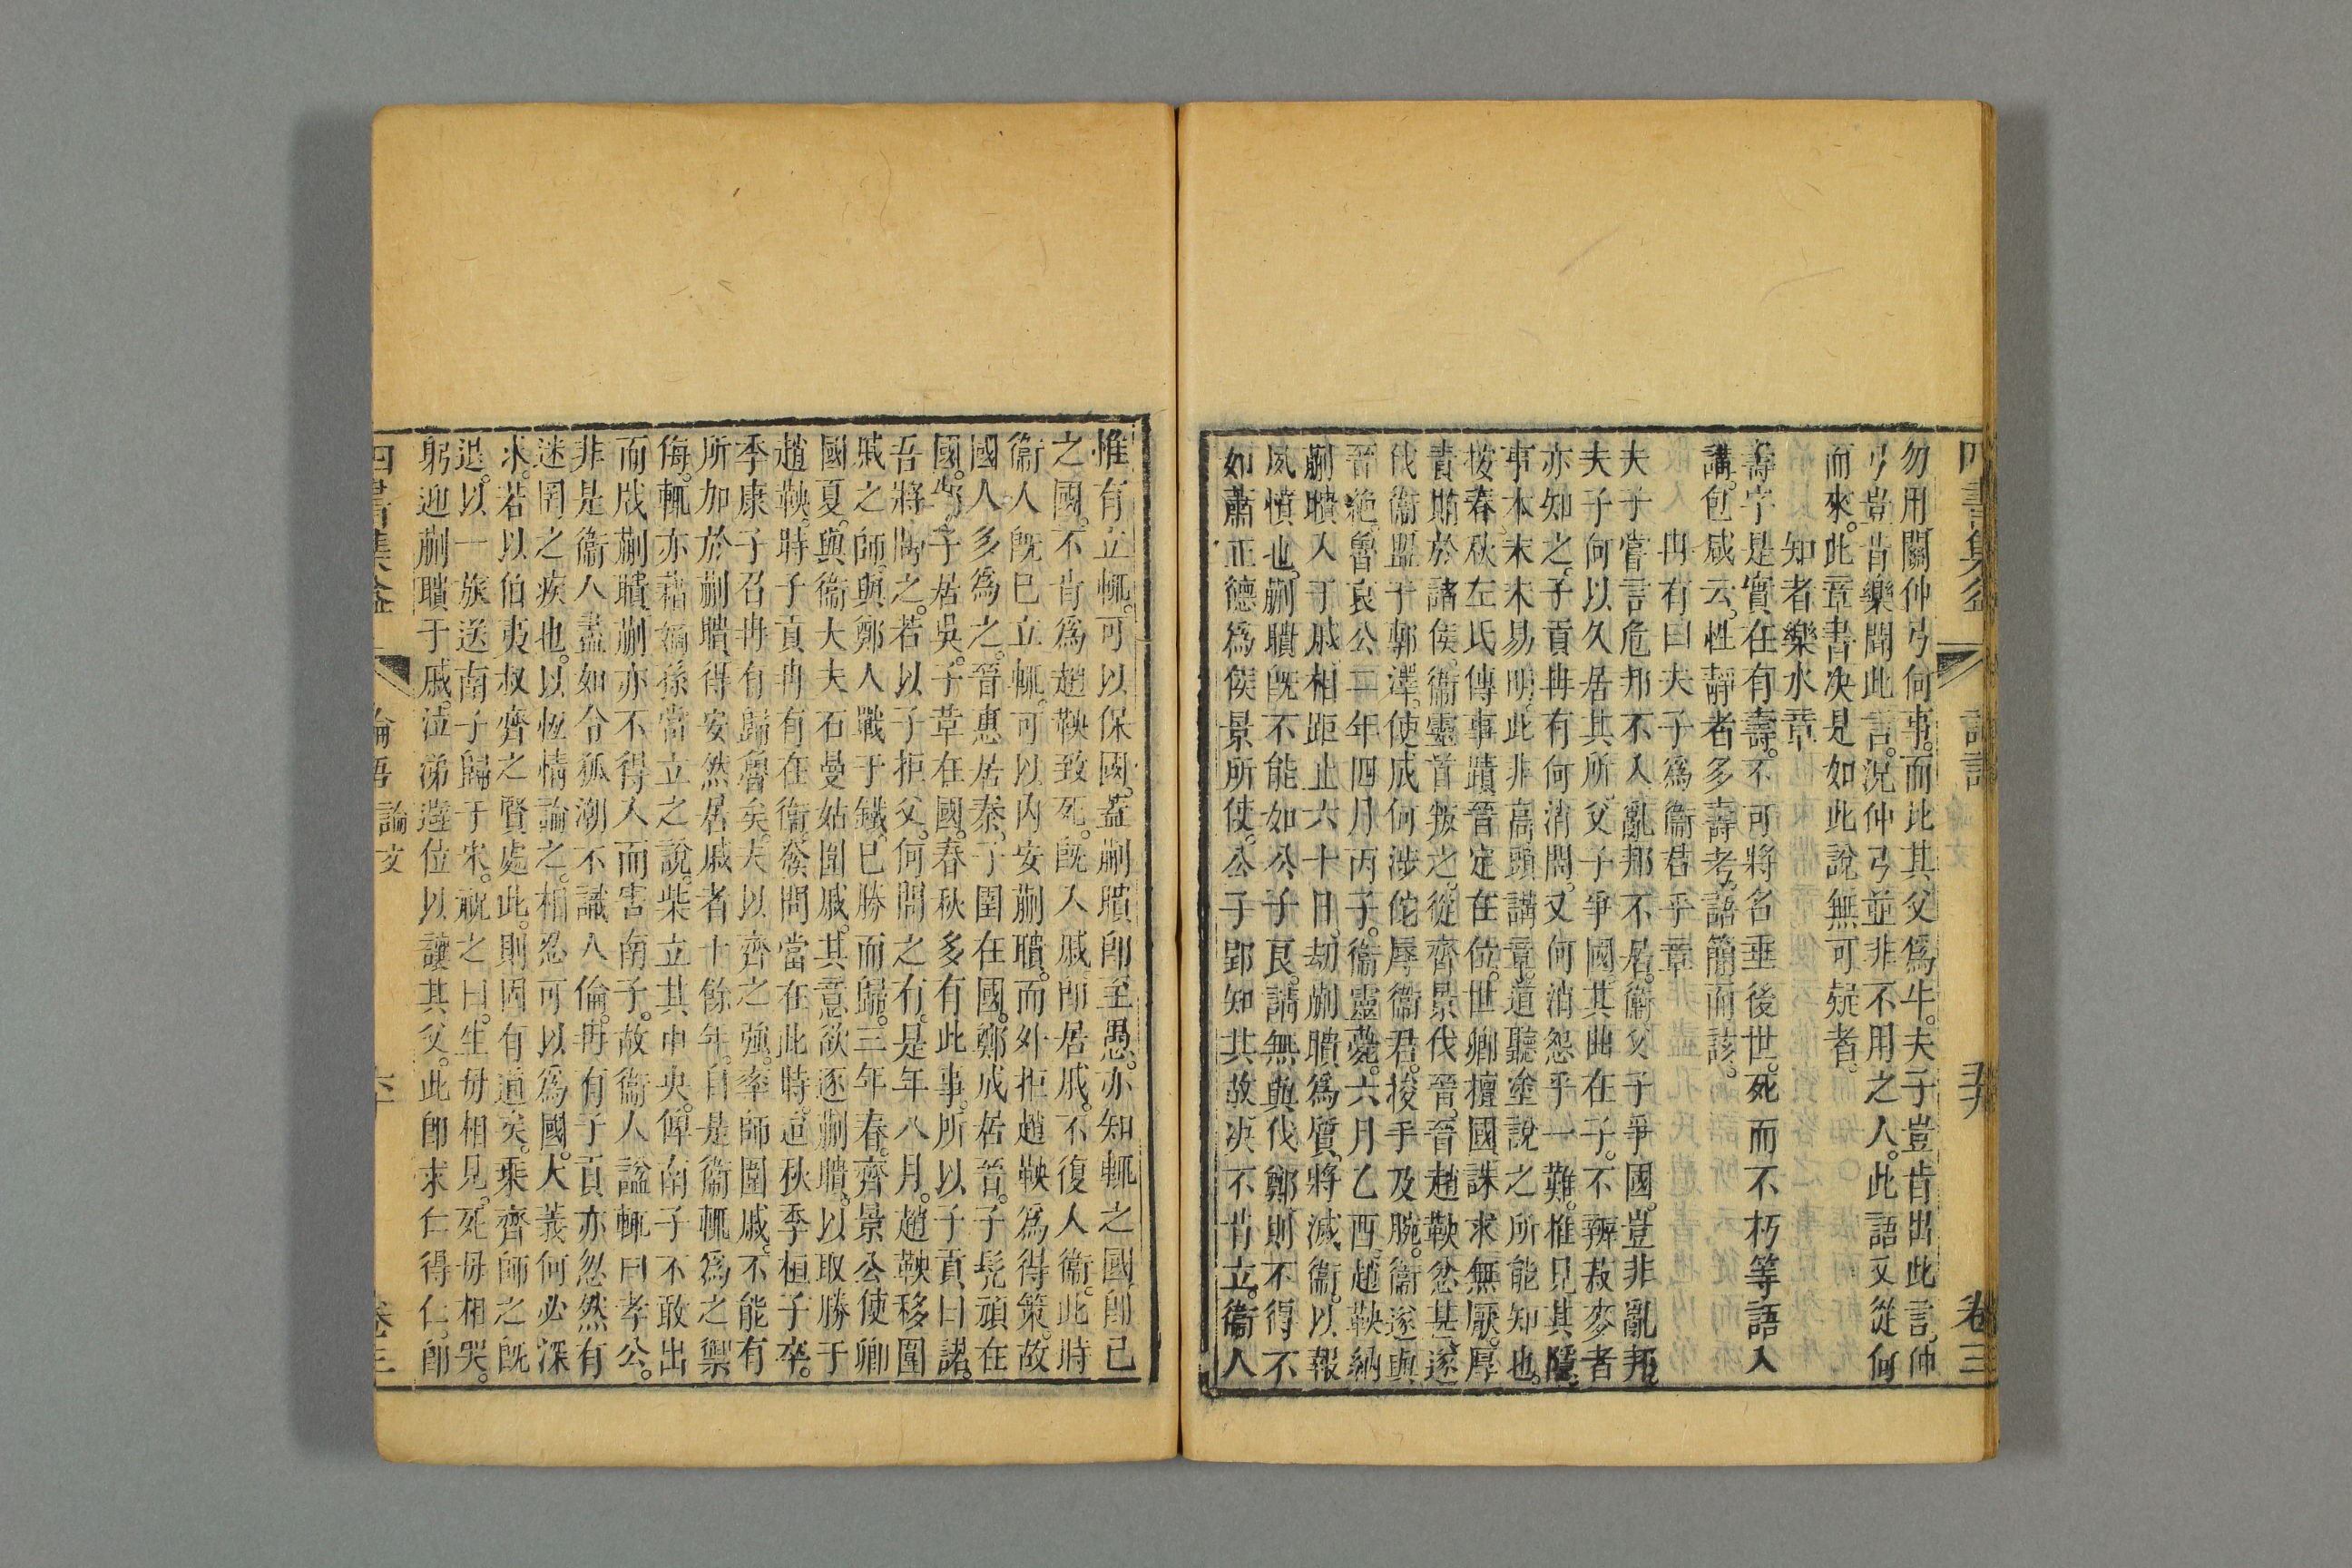 勿用關仲弓何事。而比其父爲牛。夫子豈肯出此言。仲
弓豈肯樂聞此言。況仲弓並非不用之人。此語又從何
而來。此章書决是如此說無可疑者。
知者樂水章
壽字是實在有壽。不可將名垂後世。死而不朽等語入
講。包咸云。性靜者多壽考。語簡而該。
冉有曰夫子爲衞君乎章
夫子嘗言危邦不入亂邦不居。衞父子爭國。豈非亂邦。
夫子何以久居其所。父子爭國。其曲在子。不辨菽麥者
亦知之。子貢冉有何消問。又何消怨乎一難。惟見其隱。
事本末未易明。此非高頭講章。道聽塗說之所能知也。
按春秋左氏傳事蹟。晉定在位。世卿擅國。誅求無厭。厚
責賂於諸侯。衞靈首叛之。從齊景伐晉。晉趙鞅忿甚。遂
伐衞盟于鄟澤。使成何涉佗辱衞君。捘手及腕。衞遂與
晉絶。魯哀公二年四月丙子。衞靈薨。六月乙酉。趙鞅納
蒯聵入于戚。相距止六十日。刼蒯聵爲質。將滅衞。以報
夙憤也。蒯聵旣不能如公子良。請無與伐鄭。則不得不
如蕭正德爲侯景所使。公子郢知其故。决不肯立。衞人
四書集益
論語
五十九
卷三
惟有立輒。可以保國。蓋蒯聵卽至愚。亦知輒之國卽已
之國。不肯爲趙鞅致死。旣入戚卽居戚。不復入衞。此時
衞人旣已立輒。可以内安蒯聵。而外拒趙鞅爲得策。故
國人多爲之。晉惠居秦。子圉在國。鄭成居晉。子髡頑在
國。邾子居吳。子革在國。春秋多有此事。所以子貢曰諾。
吾將問之。若以子拒父。何問之有。是年八月。趙鞅移圍
戚之師。與鄭人戰于鐵。已勝而歸。三年春。齊景公使卿
國夏。與衞大夫石曼姑圍戚。其意欲逐蒯聵。以取勝于
趙鞅。時子貢冉有在衞。發問當在此時。迨秋季桓子卒。
季康子召冉有歸魯矣。夫以齊之強。率師圍戚。不能有
所加於蒯聵。得安然居戚者十餘年。自是衞輒爲之禦
侮。輒亦藉嫡孫當立之說。柴立其中央。俾南子不敢出
而戕蒯聵。蒯亦不得入而害南子。故衞人謚輒曰孝公。
非是衞人盡如令狐潮不識人倫。冉有子貢亦忽然有
迷罔之疾也。以恆情論之。相忍可以爲國。大義何必深
求。若以伯夷叔齊之賢處此。則固有道矣。乘齊師之旣
退。以一旅送南子歸于宋。祝之曰。生毋相見。死毋相哭。
躬迎蒯聵于戚。泣涕遜位以讓其父。此卽求仁得仁。卽
四書集益
論語
論文
六十
卷三